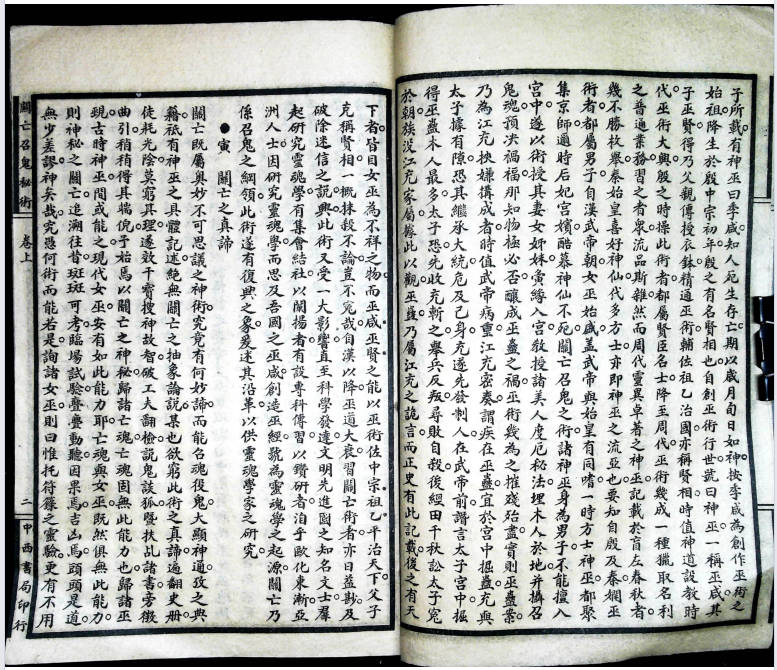 子所載。有神巫曰季咸。知人死生存亡。期以歲月旬日如神。按季咸為創作巫術之
始祖。降生於殷中宗初年。殷之有名賢相也。自創巫術行世。號曰神巫。一稱巫咸。其
子巫賢。得乃父親傳授衣鉢。精通巫術。輔佐祖乙治國。亦稱賢相。時值神道設教時
代。巫術大興。殷之時操此術者。都屬賢臣名士。降至周代。巫術幾成一種獵取名利
之普通業務。習之者眾。流品斯雜。然而周代靈異卓著之神巫。記載於盲左春秋者。
幾不勝枚舉。秦始皇喜好神仙。代多方士。亦即神巫之流亞也。要知自殷及秦。嫻巫
術者。都屬男子。自漢武帝朝。女巫始盛。蓋武帝與始皇有同嗜。一時方士神巫。都聚
集京師。適時后妃宮嬪。酷慕神仙不死關亡召鬼之術。諸神巫身為男子。不能擅入
宮中。遂以術授其妻女姊妹。夤緣入宮。教授諸美人度厄秘法。埋木人於地。并攝召
鬼魂。預決禍福。那知物極必否。釀成巫蠱之禍。巫術幾為之摧殘殆盡。實則巫蠱案
乃為江充挾嫌搆成者。時值武帝病重。江充密奏。謂疾在巫蠱。宜於宮中掘蠱。充與
太子據有隙。恐其繼承大統。危及己身。充遂先發制人。在武帝前譖言太子宮中掘
得巫蠱木人最多。太子恐。先收充斬之。舉兵反叛。尋敗自殺。後經田千秋訟太子冤
於朝。族沒江充家屬。緣此以觀。巫蠱乃屬江充之詭言。而正史有此記載。後之有天
下者。皆目女巫為不祥之物。而巫咸巫賢之能以巫術佐中宗祖乙平治天下。父子
克稱賢相。一概抹殺不論。豈不冤哉。自漢以降。巫道大衰。習關亡術者。亦日益尠。及
破除迷信之說興。此術又受一大影響。直至科學發達文明先進國之知名文士羣
起研究靈魂學。有集會結社以闡揚者。有設專科傳習以鑽研者。洎乎歐化東漸。亞
洲人士。因研究靈魂學。而思及吾國之巫咸創造巫經。號為靈魂學之起源。關亡乃
係召鬼之綱領。此術遂有復興之象。爰述其沿革。以供靈魂學家之研究。
●寅　關亡之真諦
關亡既屬奧妙不可思議之神術。究竟有何妙諦。而能召魂役鬼。大顯神通。攷之典
籍。祇有神巫之具體記述。絕無關亡之抽象論說。某也欲窮此術之真諦。遍翻史冊。
徒耗光陰。莫窮其理。遂效干寶搜神故智。破工夫翻檢說鬼談狐暨扶乩諸書。旁徵
曲引。稍稍得其端倪。予始焉以關亡之神秘。歸諸亡魂。亡魂固無此能力也。歸諸巫
覡。古時神巫。間或能之。現代女巫。安有如此能力耶。亡魂與女巫。既然俱無此能力。
則神秘之關亡。追溯往昔。斑斑可考。臨場試驗。聲聲動聽。因果焉。吉凶焉。頭頭是道。
無少差謬。神矣哉。究憑何術而能若是。詢諸女巫。則曰惟托符籙之靈驗。更有不用
關亡召鬼秘術
卷上
二
中西書局印行